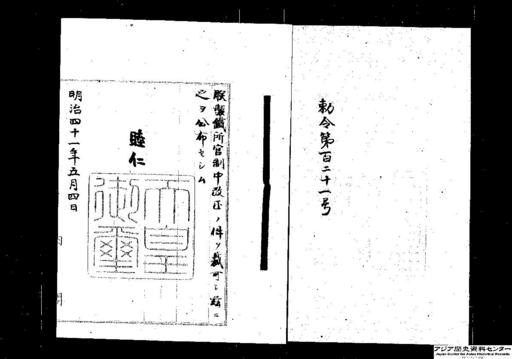 勅令第百二十一号
朕製鐵所官制中改正ノ件ヲ裁可シ茲ニ
之ヲ公布セシム
睦仁
天皇御璽
明治四十一年五月四日
アジア歴史資料センター
Japan Center for Asian Historical Records